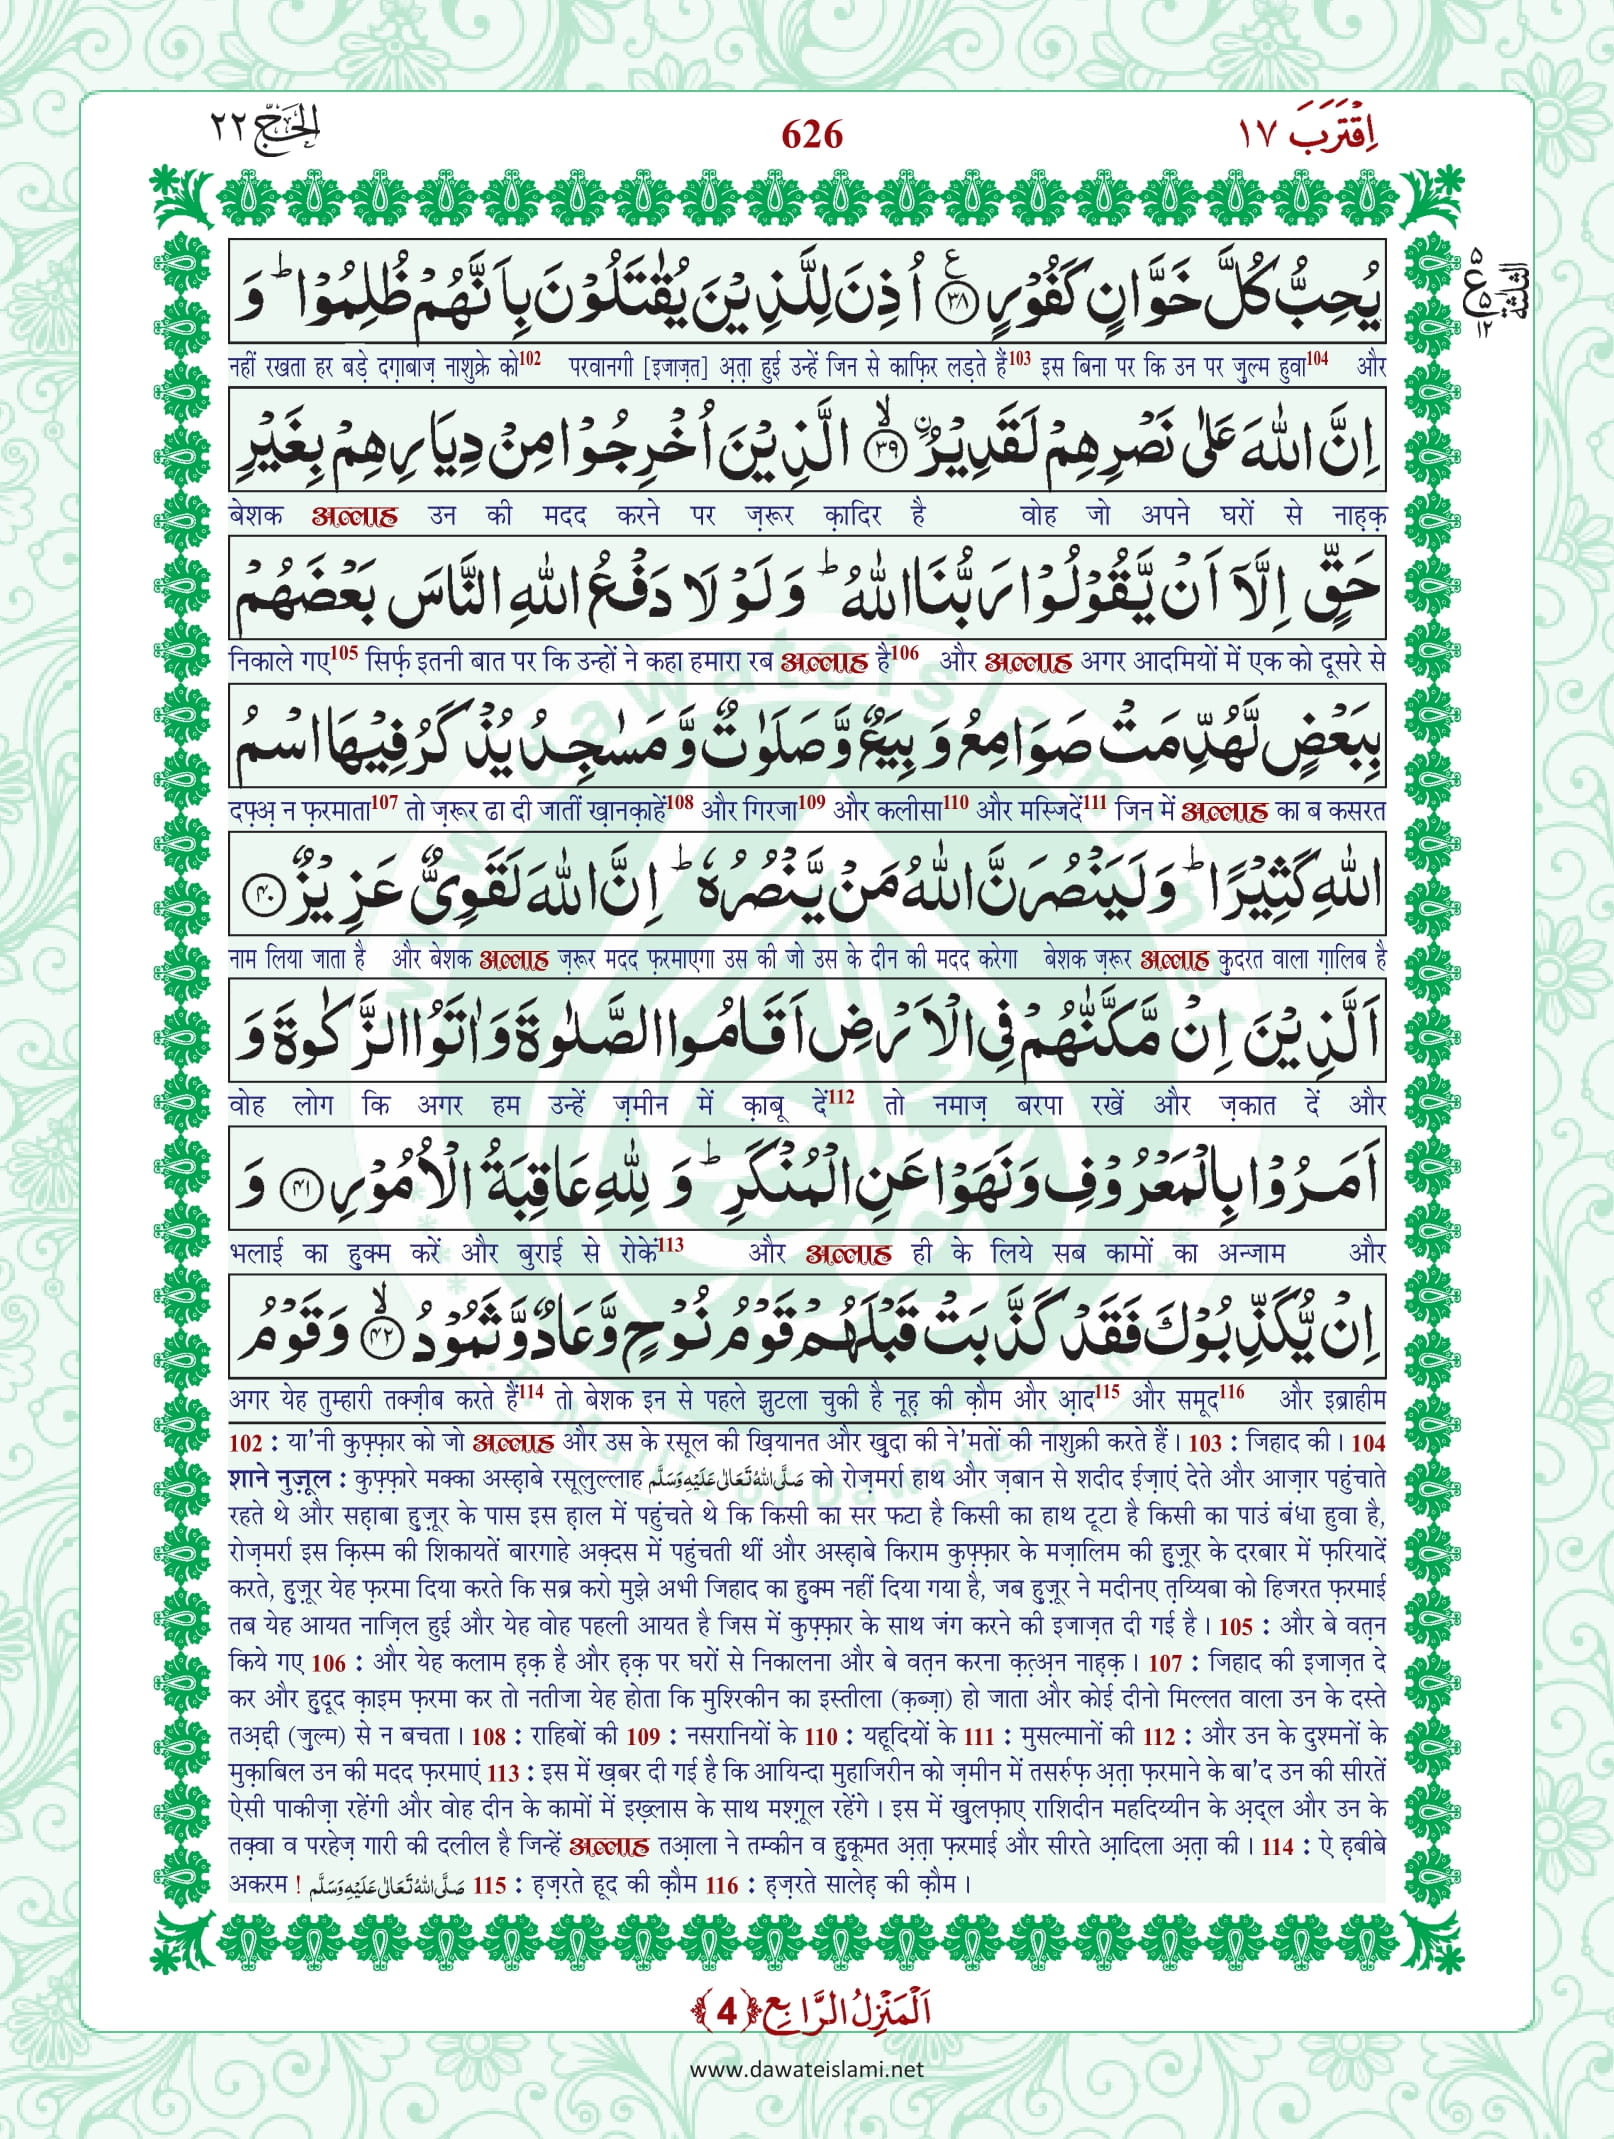 اِقْتَرَبَ ١٧ 626 الحَجّ ٢٢
يُحِبُّ كُلَّ خَوَّانٍ كَفُوْرٍ ﴿۳۸﴾ اُذِنَ لِلَّذِیْنَ یُقٰتَلُوْنَ بِاَنَّهُمْ ظُلِمُوْا ؕ وَ
नहीं रखता हर बड़े दग़ाबाज़ नाशुक्रे को102 परवानगी [इजाज़त] अ़ता़ हुई उन्हें जिन से काफ़िर लड़ते हैं103 इस बिना पर कि उन पर ज़ुल्म हुवा104 और
ع ۵ ۵ ۱۲ الثلثة
اِنَّ اللّٰهَ عَلٰى نَصْرِهِمْ لَقَدِیْرُۨ ﴿ۙ۳۹﴾ الَّذِیْنَ اُخْرِجُوْا مِنْ دِیَارِهِمْ بِغَیْرِ
बेशक अल्लाह उन की मदद करने पर ज़रूर क़ादिर है वोह जो अपने घरों से नाह़क़
حَقٍّ اِلَّاۤ اَنْ یَّقُوْلُوْا رَبُّنَا اللّٰهُ ؕ وَ لَوْ لَا دَفْعُ اللّٰهِ النَّاسَ بَعْضَهُمْ
निकाले गए105 सिर्फ़ इतनी बात पर कि उन्हों ने कहा हमारा रब अल्लाह है106 और अल्लाह अगर आदमियों में एक को दूसरे से
بِبَعْضٍ لَّهُدِّمَتْ صَوَامِعُ وَ بِیَعٌ وَّ صَلَوٰتٌ وَّ مَسٰجِدُ یُذْكَرُ فِیْهَا اسْمُ
दफ़्अ़ न फ़रमाता107 तो ज़रूर ढा दी जातीं ख़ानक़ाहें108 और गिरजा109 और कलीसा110 और मस्जिदें111 जिन में अल्लाह का ब कसरत
اللّٰهِ كَثِیْرًا ؕ وَ لَیَنْصُرَنَّ اللّٰهُ مَنْ یَّنْصُرُهٗ ؕ اِنَّ اللّٰهَ لَقَوِیٌّ عَزِیْزٌ ﴿۴۰﴾
नाम लिया जाता है और बेशक अल्लाह ज़रूर मदद फ़रमाएगा उस की जो उस के दीन की मदद करेगा बेशक ज़रूर अल्लाह कुदरत वाला ग़ालिब है
اَلَّذِیْنَ اِنْ مَّكَّنّٰهُمْ فِی الْاَرْضِ اَقَامُوا الصَّلٰوةَ وَ اٰتَوُا الزَّكٰوةَ وَ
वोह लोग कि अगर हम उन्हें ज़मीन में क़ाबू दें112 तो नमाज़ बरपा रखें और ज़कात दें और
اَمَرُوْا بِالْمَعْرُوْفِ وَ نَهَوْا عَنِ الْمُنْكَرِ ؕ وَ لِلّٰهِ عَاقِبَةُ الْاُمُوْرِ ﴿۴۱﴾ وَ
भलाई का हुक्म करें और बुराई से रोकें113 और अल्लाह ही के लिये सब कामों का अन्जाम और
اِنْ یُّكَذِّبُوْكَ فَقَدْ كَذَّبَتْ قَبْلَهُمْ قَوْمُ نُوْحٍ وَّ عَادٌ وَّ ثَمُوْدُ ﴿ۙ۴۲﴾ وَ قَوْمُ
अगर येह तुम्हारी तक्ज़ीब करते हैं114 तो बेशक इन से पहले झुटला चुकी है नूह़ की क़ौम और आ़द115 और समूद116 और इब्राहीम
102 : या'नी कुफ़्फ़ार को जो अल्लाह और उस के रसूल की ख़ियानत और ख़ुदा की ने'मतों की नाशुक्री करते हैं। 103 : जिहाद की। 104
शाने नुज़ूल : कुफ़्फ़ारे मक्का अस्ह़ाबे रसूलुल्लाह صَلَّى اللهُ تَعَالٰى عَلَيْهِ وَسَلَّم को रोज़मर्रा हाथ और ज़बान से शदीद ईज़ाएं देते और आज़ार पहुंचाते
रहते थे और सह़ाबा हु़ज़ूर के पास इस ह़ाल में पहुंचते थे कि किसी का सर फटा है किसी का हाथ टूटा है किसी का पाउं बंधा हुवा है,
रोज़मर्रा इस क़िस्म की शिकायतें बारगाहे अक़्दस में पहुंचती थीं और अस्ह़ाबे किराम कुफ़्फ़ार के मज़ालिम की हु़ज़ूर के दरबार में फ़रियादें
करते, हु़ज़ूर येह फ़रमा दिया करते कि सब्र करो मुझे अभी जिहाद का हु़क्म नहीं दिया गया है, जब हु़ज़ूर ने मदीनए त़य्यिबा को हिजरत फ़रमाई
तब येह आयत नाज़िल हुई और येह वोह पहली आयत है जिस में कुफ़्फ़ार के साथ जंग करने की इजाज़त दी गई है। 105 : और बे वत़न
किये गए 106 : और येह कलाम ह़क़ है और ह़क़ पर घरों से निकालना और बे वत़न करना क़त़्अ़न नाह़क़। 107 : जिहाद की इजाज़त दे
कर और हु़दूद क़ाइम फ़रमा कर तो नतीजा येह होता कि मुश्रिकीन का इस्तीला (क़ब्ज़ा) हो जाता और कोई दीनो मिल्लत वाला उन के दस्ते
तअ़द्दी (ज़ुल्म) से न बचता। 108 : राहिबों की 109 : नसरानियों के 110 : यहूदियों के 111 : मुसल्मानों की 112 : और उन के दुश्मनों के
मुक़ाबिल उन की मदद फ़रमाएं 113 : इस में ख़बर दी गई है कि आयिन्दा मुहाजिरीन को ज़मीन में तसर्रुफ़ अ़त़ा फ़रमाने के बा'द उन की सीरतें
ऐसी पाकीज़ा रहेंगी और वोह दीन के कामों में इख़्लास के साथ मश्ग़ूल रहेंगे। इस में ख़ुलफ़ाए राशिदीन महदिय्यीन के अ़द्ल और उन के
तक़्वा व परहेज़ गारी की दलील है जिन्हें अल्लाह तआ़ला ने तम्कीन व हु़कूमत अ़त़ा फ़रमाई और सीरते आ़दिला अ़त़ा की। 114 : ऐ ह़बीबे
अकरम ! صَلَّى اللهُ تَعَالٰى عَلَيْهِ وَسَلَّم 115 : ह़ज़रते हूद की क़ौम 116 : ह़ज़रते सालेह़ की क़ौम।
اَلْمَنْزِلُ الرَّابِع ﴿4﴾
www.dawateislami.net